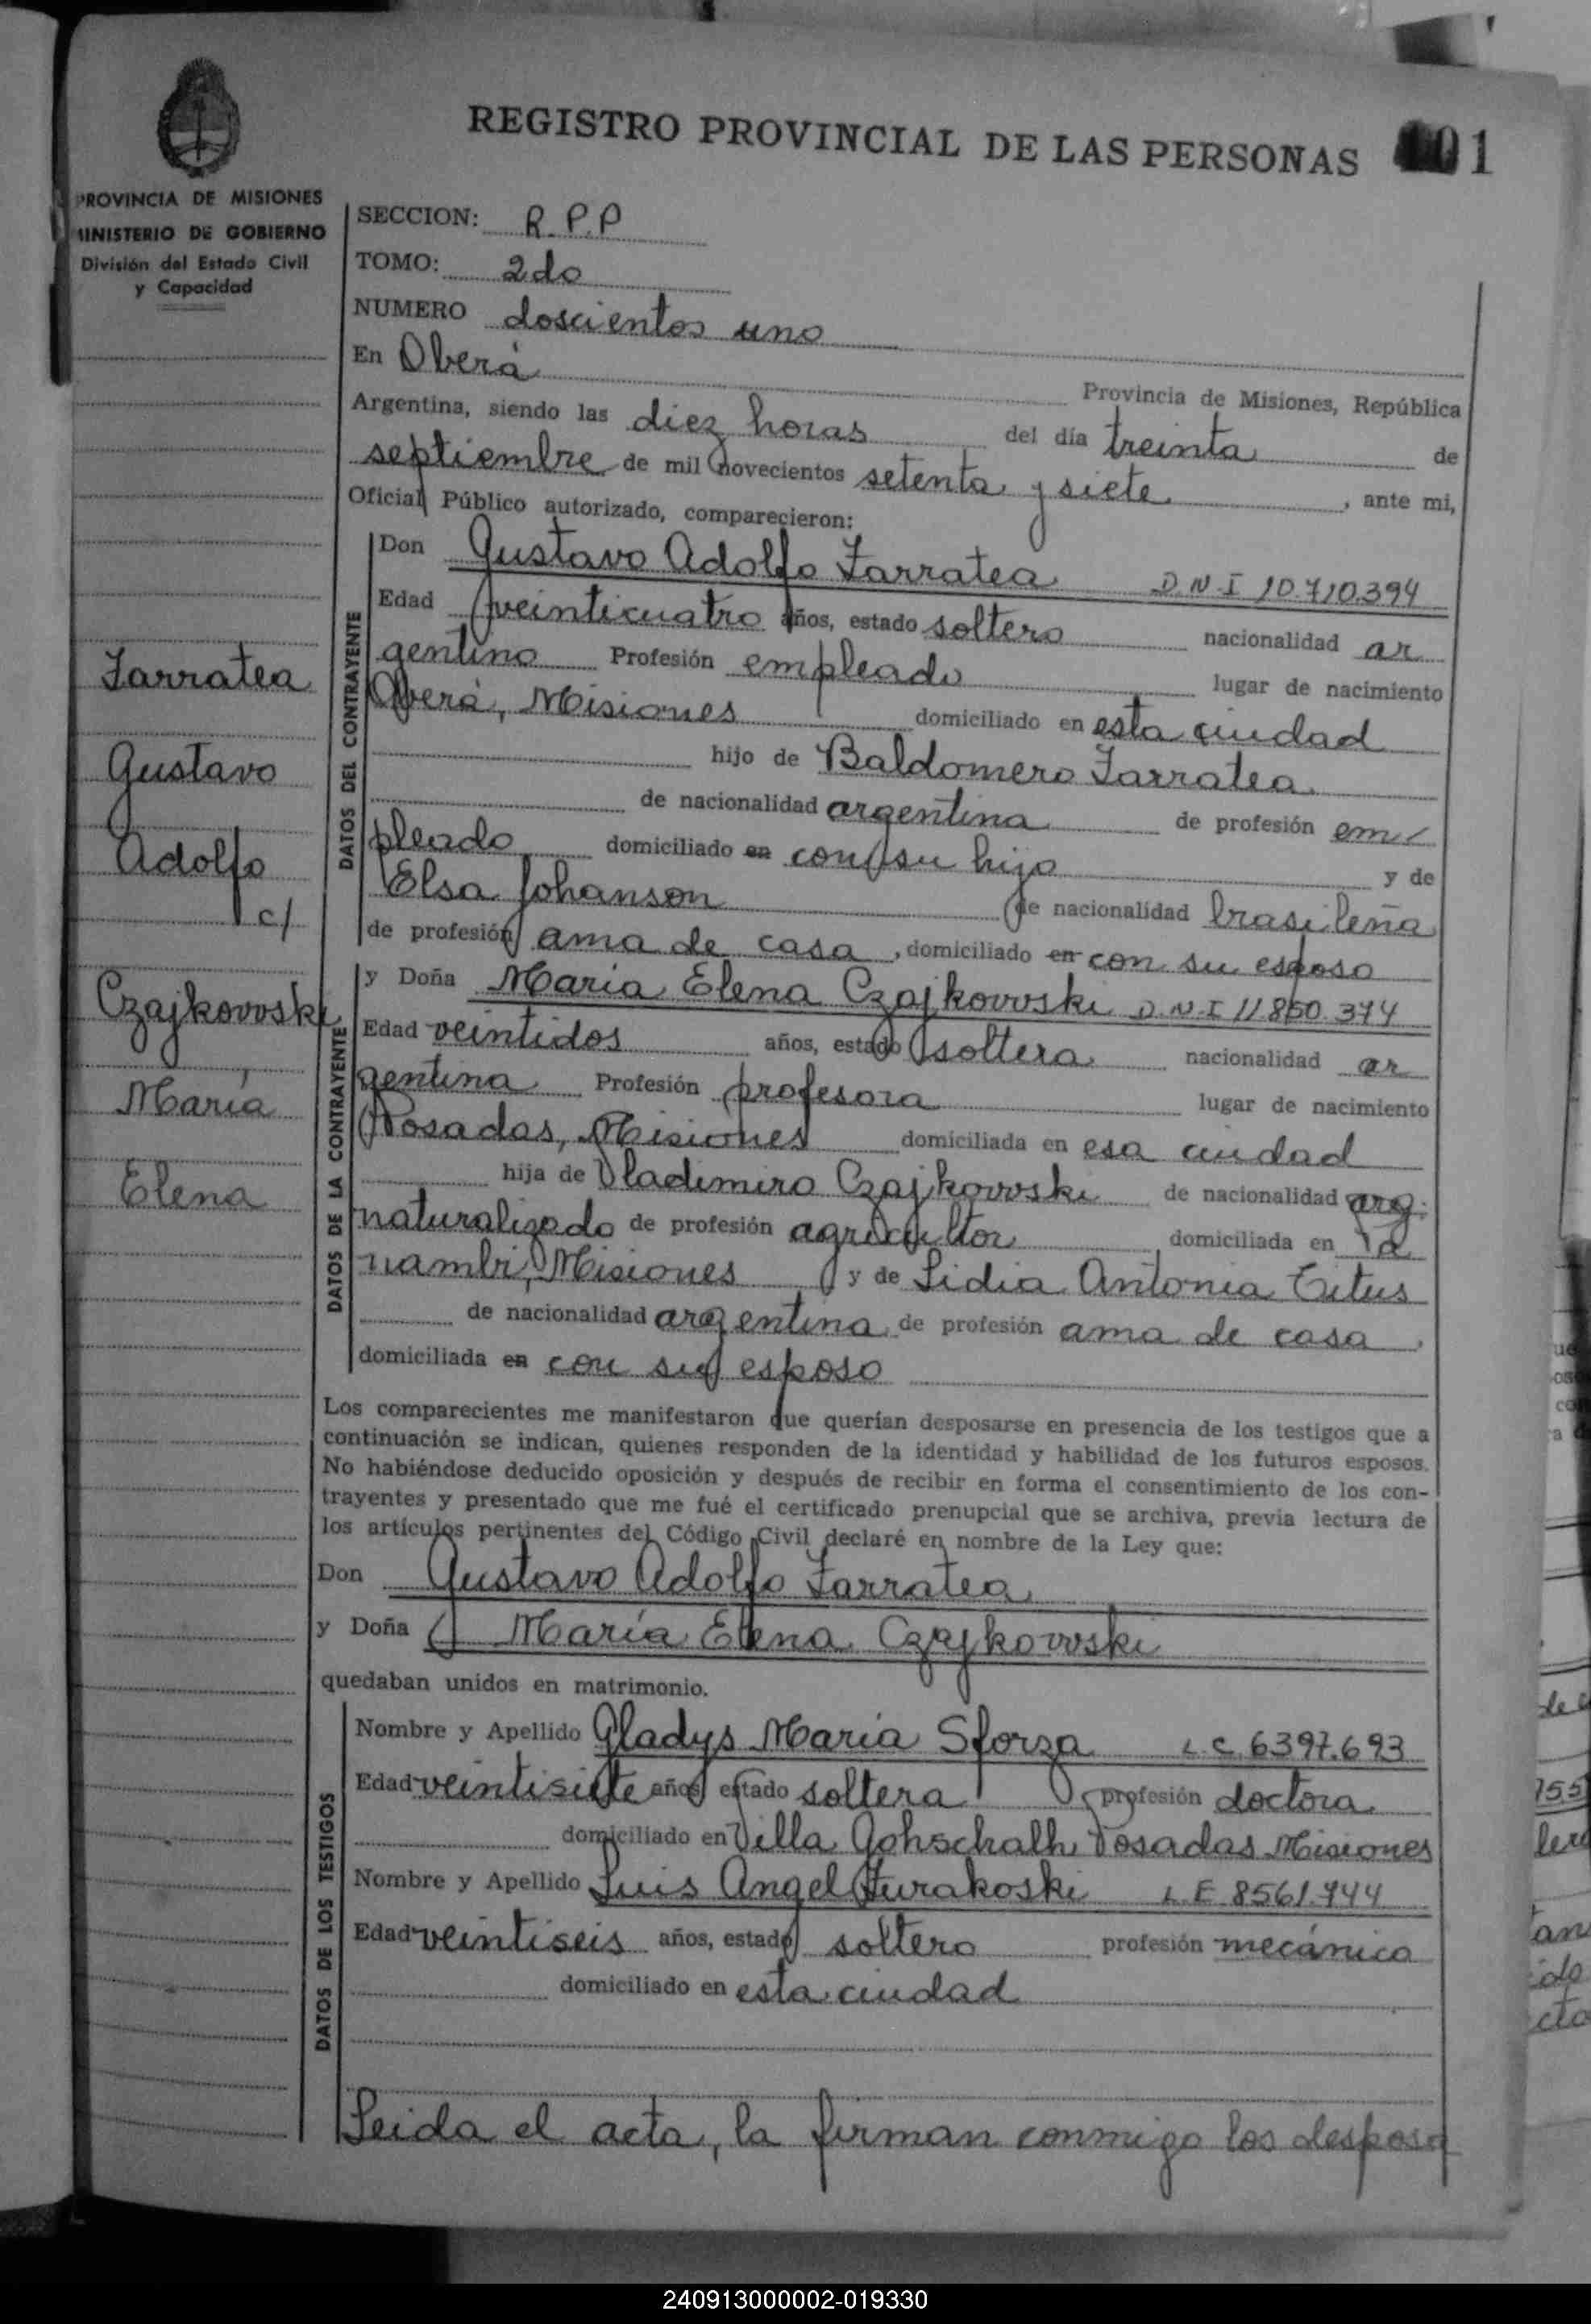 REGISTRO PROVINCIAL DE LAS PERSONAS 01
PROVINCIA DE MISIONES
MINISTERIO DE GOBIERNO
División del Estado Civil
y Capacidad
SECCION: R.P.P
TOMO: 2do
NUMERO doscientos uno
En Oberá Provincia de Misiones, República
Argentina, siendo las diez horas del día treinta de
septiembre de mil novecientos setenta y siete, ante mi,
Oficial Público autorizado, comparecieron:
DATOS DEL CONTRAYENTE
Don Gustavo Adolfo Zarratea D.N.I 10.710.394
Edad veinticuatro años, estado soltero nacionalidad ar
gentino Profesión empleado lugar de nacimiento
Oberá, Misiones domiciliado en esta ciudad
hijo de Baldomero Zarratea
de nacionalidad argentina de profesión em/
pleado domiciliado en con su hijo y de
Elsa Johanson de nacionalidad brasileña
de profesión ama de casa, domiciliado en con su esposo
Zarratea
Gustavo
Adolfo
c/
Czajkowski
María
Elena
DATOS DE LA CONTRAYENTE
y Doña María Elena Czajkowski D.N.I 11.850.374
Edad veintidos años, estado soltera nacionalidad ar
gentina Profesión profesora lugar de nacimiento
Posadas, Misiones domiciliada en esa ciudad
hija de Vladimiro Czajkowski de nacionalidad arg.
naturalizado de profesión agricultor domiciliada en Pa
nambi, Misiones y de Lidia Antonia Titus
de nacionalidad argentina de profesión ama de casa,
domiciliada en con su esposo
Los comparecientes me manifestaron que querían desposarse en presencia de los testigos que a
continuación se indican, quienes responden de la identidad y habilidad de los futuros esposos.
No habiéndose deducido oposición y después de recibir en forma el consentimiento de los con-
trayentes y presentado que me fué el certificado prenupcial que se archiva, previa lectura de
los artículos pertinentes del Código Civil declaré en nombre de la Ley que:
Don Gustavo Adolfo Zarratea
y Doña María Elena Czajkowski
quedaban unidos en matrimonio.
DATOS DE LOS TESTIGOS
Nombre y Apellido Gladys María Sforza L.C. 6397.693
Edad veintisiete años, estado soltera profesión doctora
domiciliado en Villa Posadas Misiones
Nombre y Apellido Luis Angel Zurakoski L.E 8561.744
Edad veintiseis años, estado soltero profesión mecánico
domiciliado en esta ciudad
Leida el acta, la firman conmigo los desposa
240913000002-019330